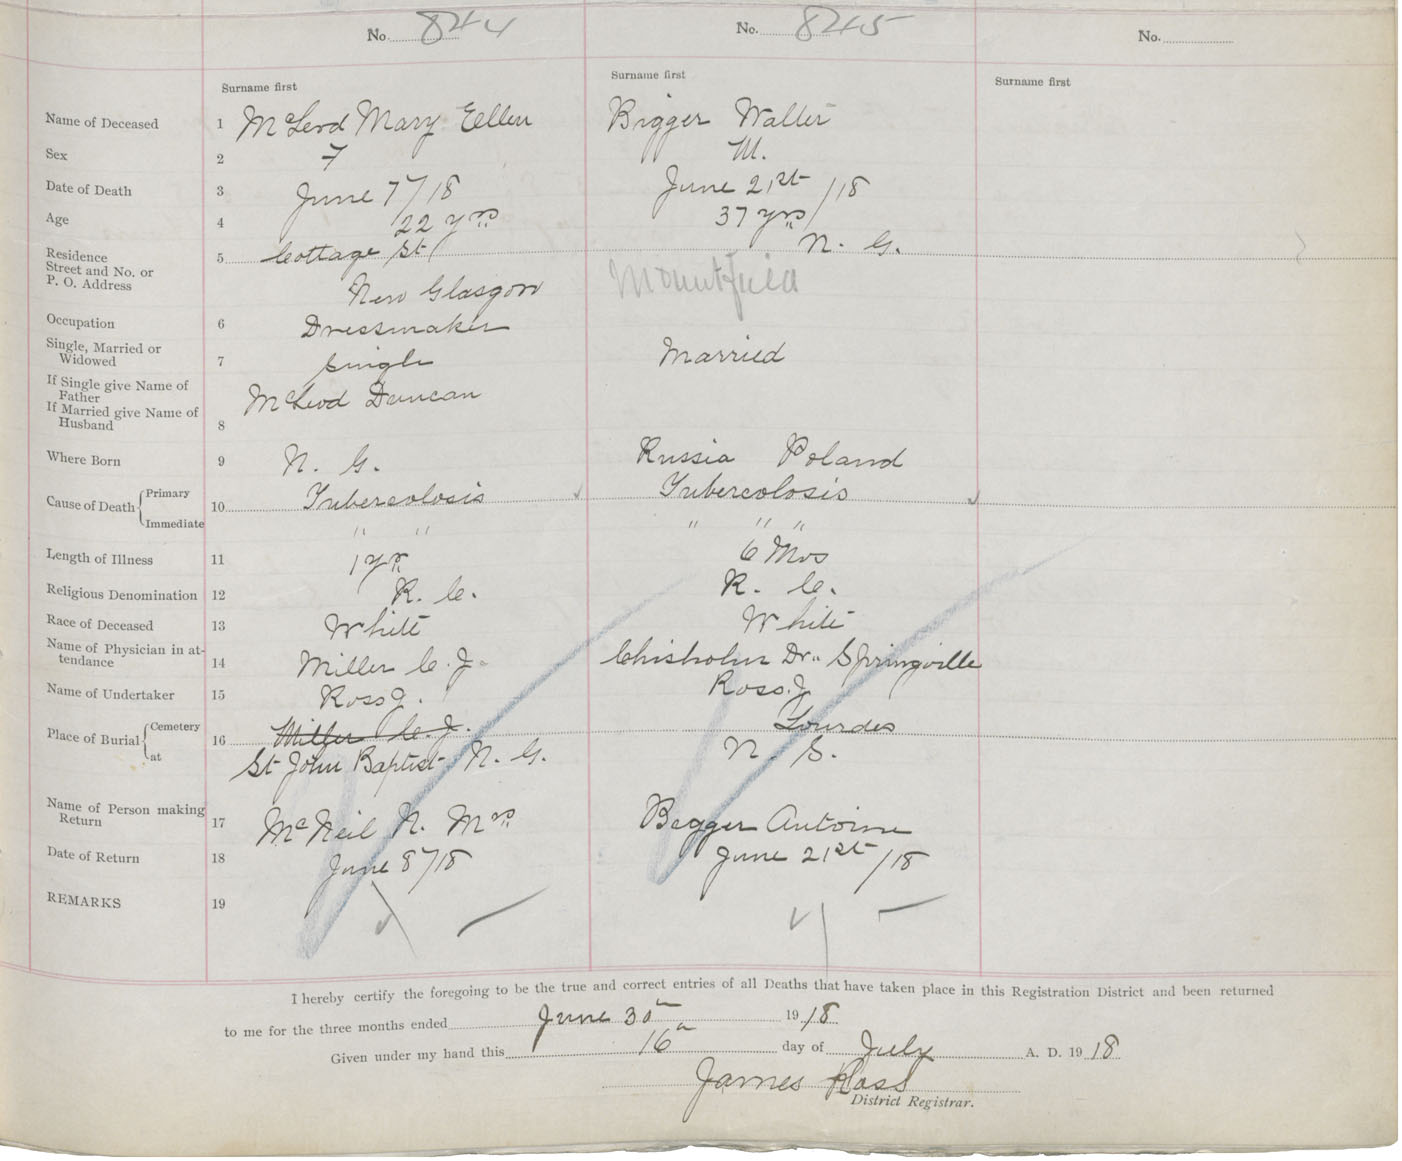 No. 844 No. 845 No.
Surname first Surname first Surname first
Name of Deceased 1 McLeod Mary Eellen Bigger Walter
Sex 2 F M.
Date of Death 3 June 7/18 June 21st/18
Age 4 22 yrs 37 yrs
Residence 5 Cottage St N. G.
Street and No. or
P. O. Address New Glasgow Mountfield
Occupation 6 Dressmaker
Single, Married or
Widowed 7 Single Married
If Single give Name of
Father McLeod Duncan
If Married give Name of
Husband 8
Where Born 9 N. G. Russia Poland
Cause of Death Primary 10 Tubercolosis Tubercolosis
Immediate " " " " "
Length of Illness 11 1 yr 6 Mos
Religious Denomination 12 R. C. R. C.
Race of Deceased 13 White White
Name of Physician in at-
tendance 14 Miller C. J. Chisholm Dr. Springville
Name of Undertaker 15 Ross J. Ross J
Place of Burial Cemetery 16 Miller C. J. Lourdes
at St John Baptist N. G. N. S.
Name of Person making
Return 17 McNeil N. Mrs Begger Antoine
Date of Return 18 June 8/18 June 21st/18
REMARKS 19
I hereby certify the foregoing to be the true and correct entries of all Deaths that have taken place in this Registration District and been returned
to me for the three months ended June 30th 1918
Given under my hand this 16th day of July A. D. 1918
James Ross
District Registrar.